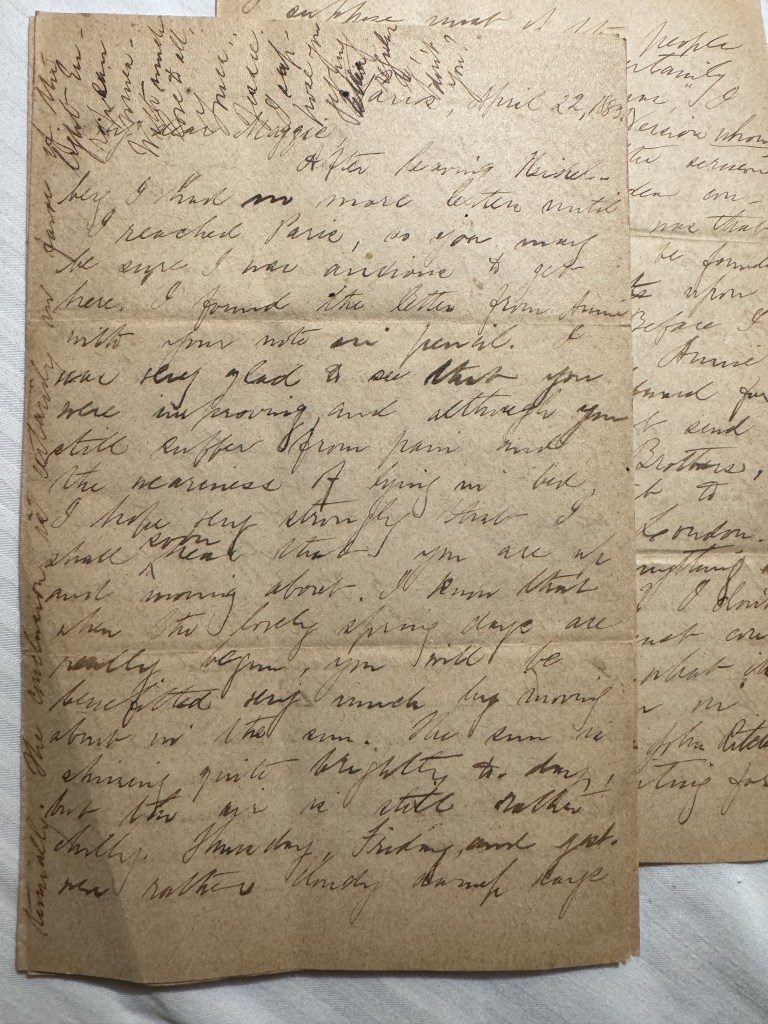 Paris, April 22, 188
My dear Maggie,
After leaving Heidel-
berg I had no more letters until
I reached Paris, so you may
be sure I was anxious to get
here. I found the letter from Annie
with your note in pencil. I
was very glad to see that you
were improving and although you
still suffer from pain and
the weariness of lying in bed,
I hope very strongly that I
shall soon hear that you are up
and moving about. I know that
when the lovely spring days are
really begun, you will be
benefitted very much by moving
about in the sun. The sun is
shining quite brightly to-day,
but the air is still rather
chilly. Thursday, Friday, and yest.
were rather cloudy damp days
The conclusion is certainly
With much
love to all,
Your
Jessie.
I sup-
pose you
don't
you?
suppose most of the people
certainly
I
version whom
the sermon
con-
was that
be found
upon
Before I
Annie
for
send
Brothers,
to
London.
anything
? I don't
what it
in
John
ting for